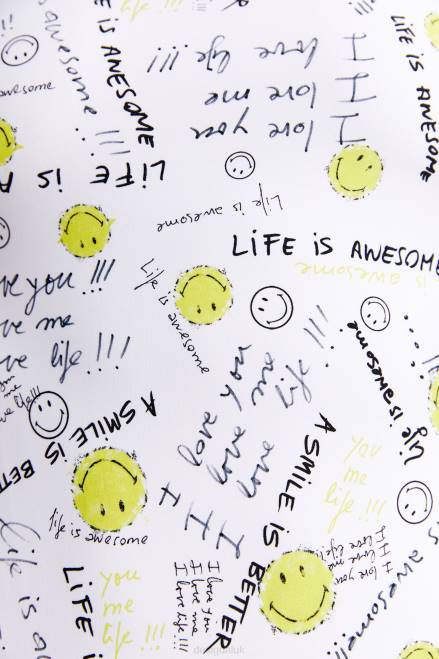 LiFE iS AWESOME
awesome
LiFE iS AWESOME
I love life !!!
I love me
I love you
LiFE iS A
Life is awesome
LiFE iS AWESOME
is awesome
ve you !!!
ve me
ve life !!!
Life is awesome
life is awesome
me
life!!!
A SMILE IS BETTE
I love you
I love me
I love life !!!
A SMILE IS BETTER
you
me
life !!!
life is awesome
I love you
I love me
I love life!!!
is awesome!!!
Life is a
LiFE i
you
me
life !!!
I love you
I love me
I love life!!!